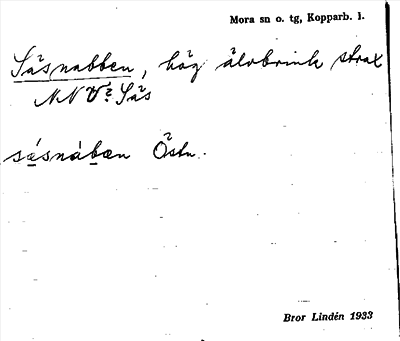 Mora sn o. tg, Kopparb. l.
Såsnabben, hög älvbrink strax
NNV Sås
såsnábæn Östn.
Bror Lindén 1933